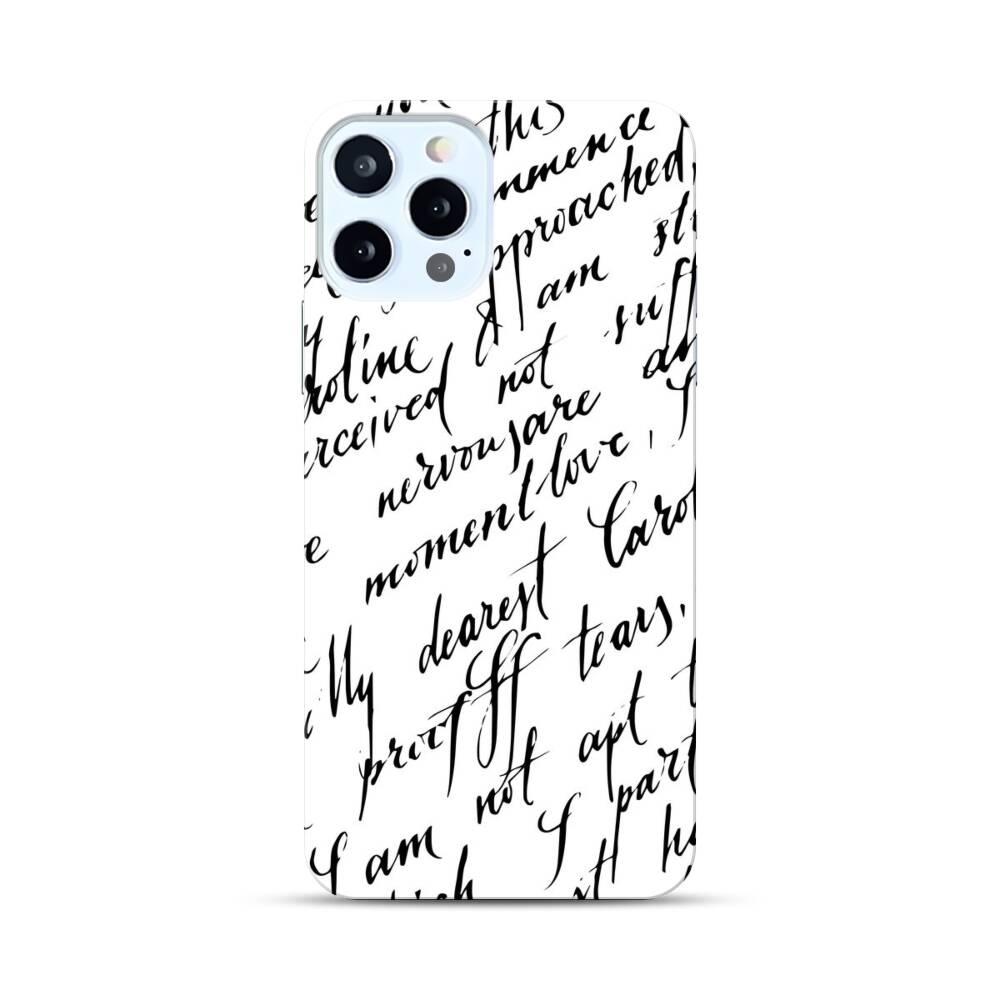 this
mmence
pproached,
I am st
roline
erceived not suff
nervous are
moment love, I
e
My dearest Carol
proof tears,
I am not apt t
I part
it ha